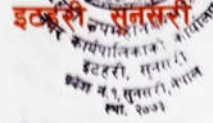 इटहरी, सुनसरी
कार्यपालिकाको कार्यालय
इटहरी, सुनसरी
प्रदेश नं. १, सुनसरी, नेपाल
स्था. २०७३